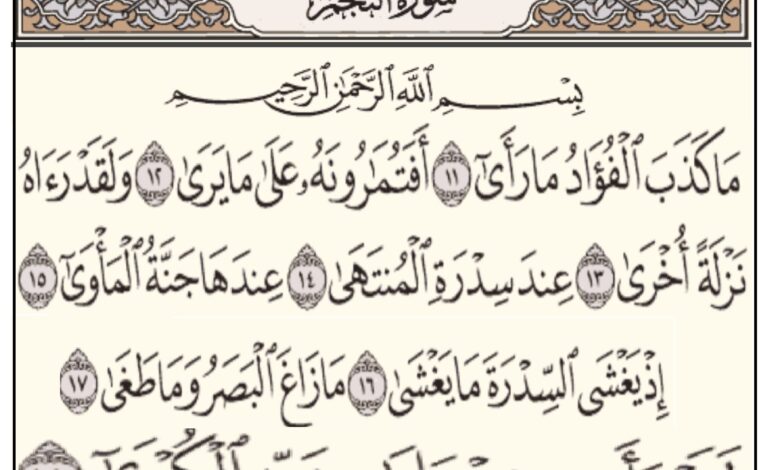 سُورَةُ النَّجْمِ
بِسْمِ ٱللَّهِ ٱلرَّحْمَٰنِ ٱلرَّحِيمِ
مَا كَذَبَ ٱلْفُؤَادُ مَا رَأَىٰٓ ١١ أَفَتُمَٰرُونَهُۥ عَلَىٰ مَا يَرَىٰ ١٢ وَلَقَدْ رَءَاهُ
نَزْلَةً أُخْرَىٰ ١٣ عِندَ سِدْرَةِ ٱلْمُنتَهَىٰ ١٤ عِندَهَا جَنَّةُ ٱلْمَأْوَىٰٓ ١٥
إِذْ يَغْشَى ٱلسِّدْرَةَ مَا يَغْشَىٰ ١٦ مَا زَاغَ ٱلْبَصَرُ وَمَا طَغَىٰ ١٧